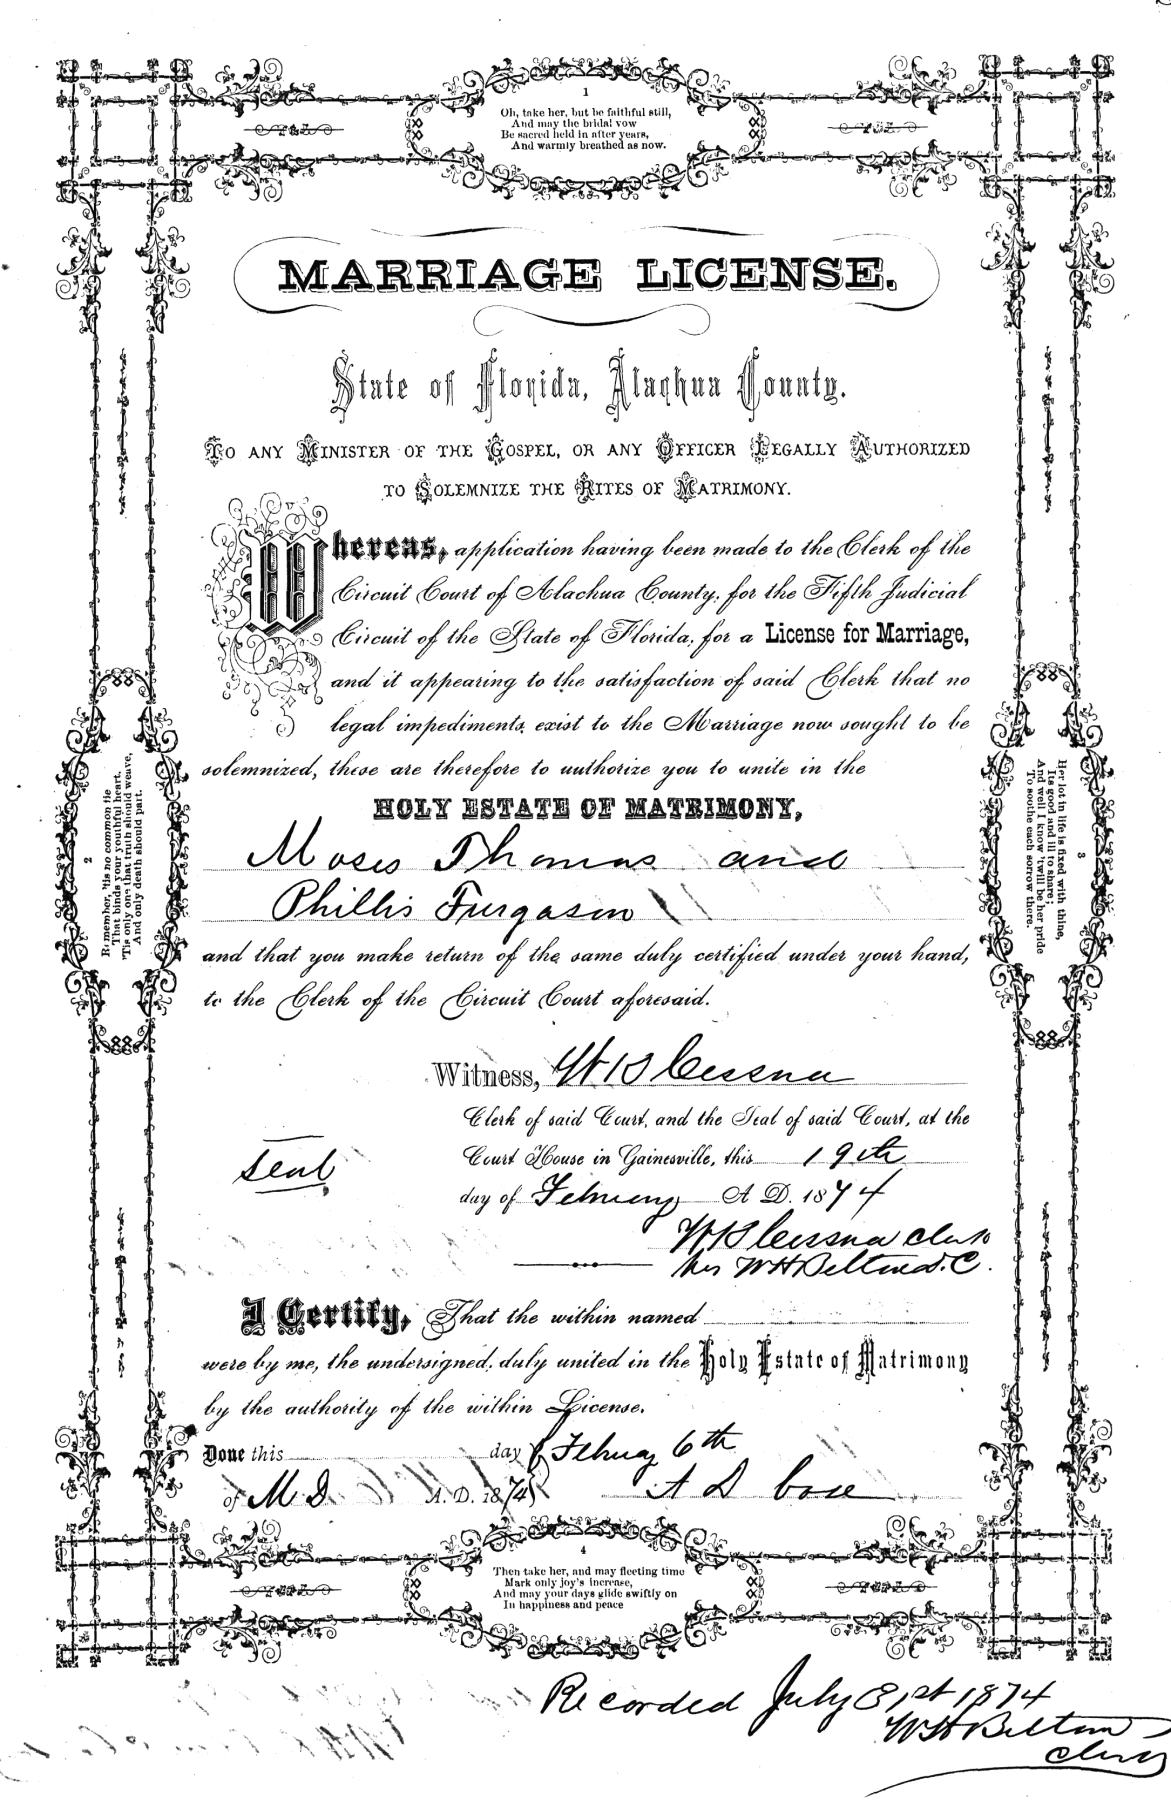 1
Oh, take her, but be faithful still,
And may the bridal vow
Be sacred held in after years,
And warmly breathed as now.
MARRIAGE LICENSE.
State of Florida, Alachua County.
TO ANY MINISTER OF THE GOSPEL, OR ANY OFFICER LEGALLY AUTHORIZED
TO SOLEMNIZE THE RITES OF MATRIMONY.
Whereas, application having been made to the Clerk of the
Circuit Court of Alachua County, for the Fifth Judicial
Circuit of the State of Florida, for a License for Marriage,
and it appearing to the satisfaction of said Clerk that no
legal impediments exist to the Marriage now sought to be
solemnized, these are therefore to authorize you to unite in the
HOLY ESTATE OF MATRIMONY,
Moses Thomas and
Phillis Furgason
and that you make return of the same duly certified under your hand,
to the Clerk of the Circuit Court aforesaid.
Witness, W B Cessna
Clerk of said Court, and the Seal of said Court, at the
Court House in Gainesville, this 19th
day of February A. D. 1874
seal
W B Cessna Clerk
W H Belton D. C.
I Certify, That the within named
were by me, the undersigned, duly united in the Holy Estate of Matrimony
by the authority of the within License.
Done this day of Februay 6th
of A. D. 1874
2
Remember, 'tis no common tie
That binds your youthful heart,
'Tis only one that truth should weave,
And only death should part.
3
Her lot in life is fixed with thine,
Its good and ill to share;
And well I know 'twill be her pride
To soothe each sorrow there.
4
Then take her, and may fleeting time
Mark only joy's increase,
And may your days glide swiftly on
In happiness and peace
Recorded July 31st 1874
W H Belton
Clerk